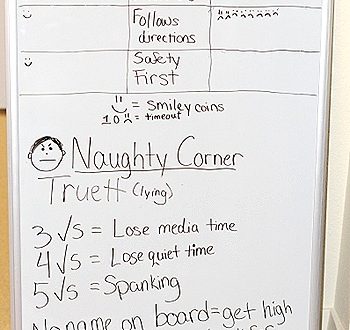 Follows
directions
Safety
First
= Smiley coins
10 = timeout
Naughty Corner
Truett (lying)
3 √s = Lose media time
4 √s = Lose quiet time
5 √s = Spanking
No name on board = get high